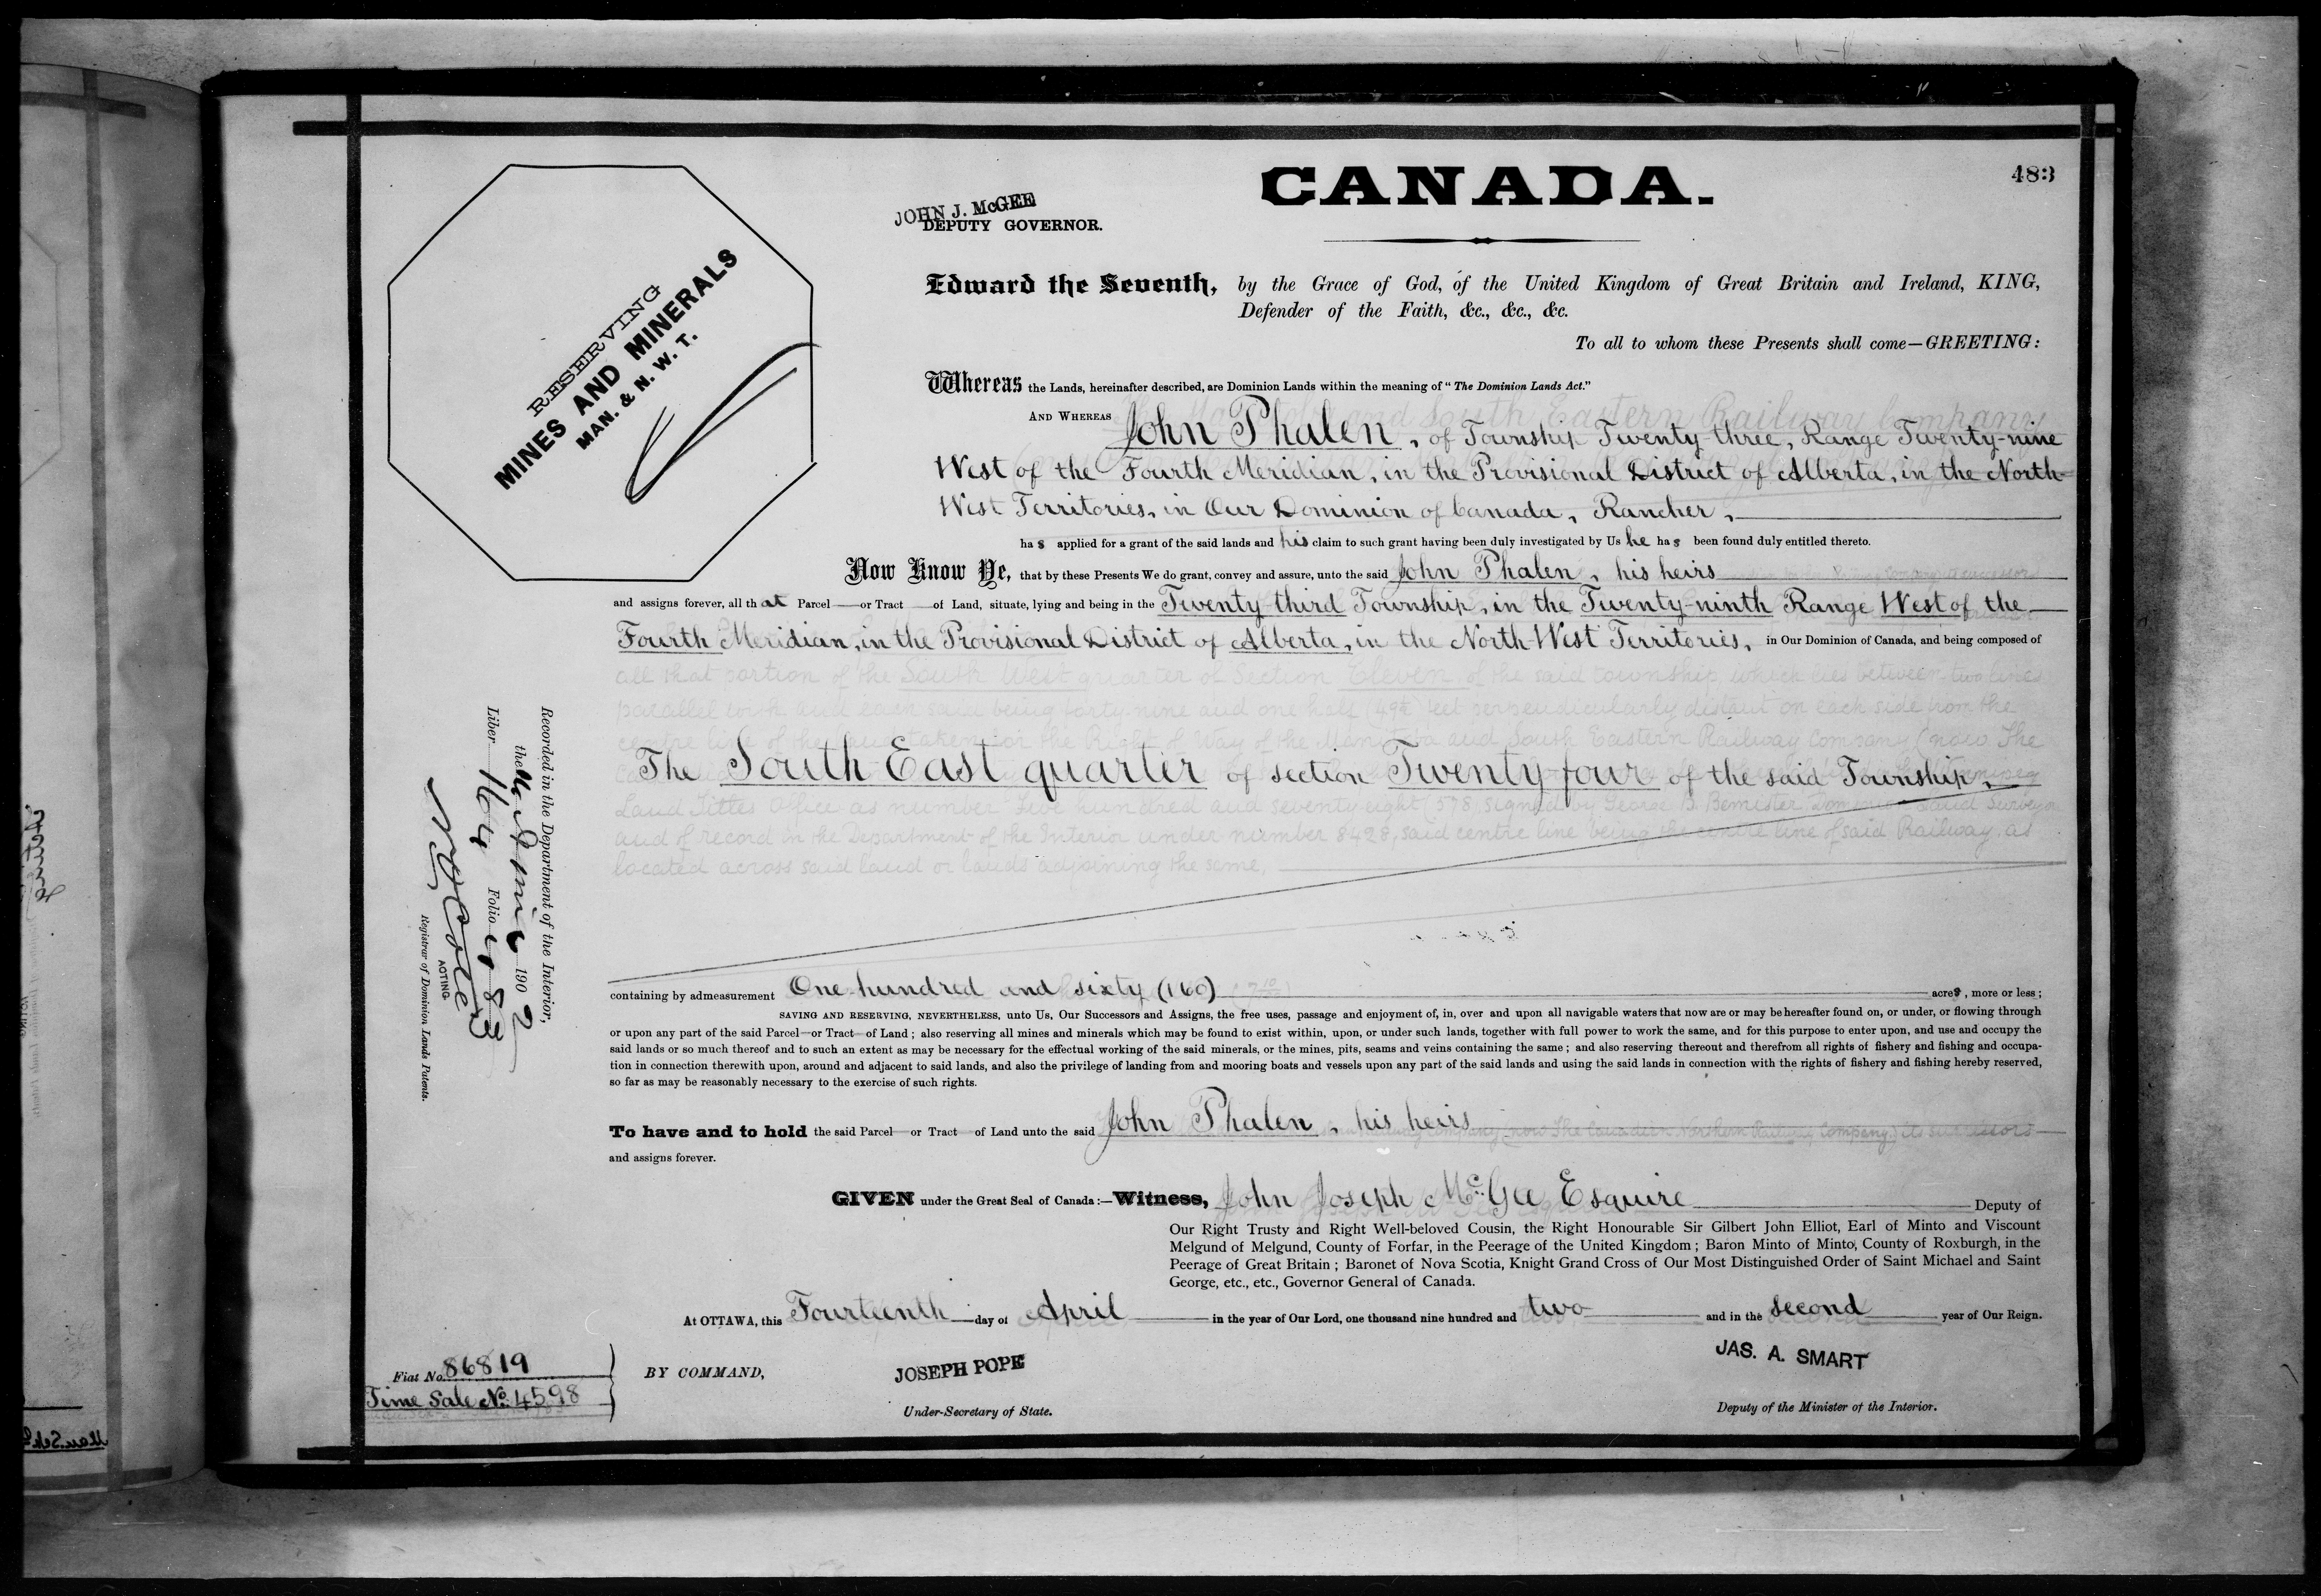 483
CANADA.
JOHN J. McGEE
DEPUTY GOVERNOR.
RESERVING
MINES AND MINERALS
MAN. & N. W. T.
Edward the Seventh, by the Grace of God, of the United Kingdom of Great Britain and Ireland, KING,
Defender of the Faith, &c., &c., &c.
To all to whom these Presents shall come—GREETING:
Whereas the Lands, hereinafter described, are Dominion Lands within the meaning of "The Dominion Lands Act."
AND WHEREAS John Phalen, of Township Twenty-three, Range Twenty-nine
West of the Fourth Meridian, in the Provisional District of Alberta, in the North-
West Territories, in Our Dominion of Canada, Rancher,
has applied for a grant of the said lands and his claim to such grant having been duly investigated by Us he has been found duly entitled thereto.
Now Know Ye, that by these Presents We do grant, convey and assure, unto the said John Phalen, his heirs
and assigns forever, all that Parcel or Tract of Land, situate, lying and being in the Twenty-third Township, in the Twenty-ninth Range West of the
Fourth Meridian, in the Provisional District of Alberta, in the North-West Territories, in Our Dominion of Canada, and being composed of
all that portion of the South West quarter of Section Eleven of the said township which lies between two lines
parallel with and each said being forty-nine and one half (49½) feet perpendicularly distant on each side from the
centre line of the taken for the Right of Way of the Manitoba and South Eastern Railway Company (now The
The South East quarter of section Twenty-four of the said Township,
Land Titles Office as number Five hundred and seventy-eight (578) signed by George B. Bemister Dominion Land Surveyor
and of record in the Department of the Interior under number 8428, said centre line being the centre line of said Railway, as
located across said land or lands adjoining the same,
containing by admeasurement One hundred and sixty (160) acres, more or less;
SAVING AND RESERVING, NEVERTHELESS, unto Us, Our Successors and Assigns, the free uses, passage and enjoyment of, in, over and upon all navigable waters that now are or may be hereafter found on, or under, or flowing through
or upon any part of the said Parcel or Tract of Land; also reserving all mines and minerals which may be found to exist within, upon, or under such lands, together with full power to work the same, and for this purpose to enter upon, and use and occupy the
said lands or so much thereof and to such an extent as may be necessary for the effectual working of the said minerals, or the mines, pits, seams and veins containing the same; and also reserving thereout and therefrom all rights of fishery and fishing and occupa-
tion in connection therewith upon, around and adjacent to said lands, and also the privilege of landing from and mooring boats and vessels upon any part of the said lands and using the said lands in connection with the rights of fishery and fishing hereby reserved,
so far as may be reasonably necessary to the exercise of such rights.
To have and to hold the said Parcel or Tract of Land unto the said John Phalen, his heirs
and assigns forever.
GIVEN under the Great Seal of Canada:—Witness, John Joseph McGee Esquire Deputy of
Our Right Trusty and Right Well-beloved Cousin, the Right Honourable Sir Gilbert John Elliot, Earl of Minto and Viscount
Melgund of Melgund, County of Forfar, in the Peerage of the United Kingdom; Baron Minto of Minto, County of Roxburgh, in the
Peerage of Great Britain; Baronet of Nova Scotia, Knight Grand Cross of Our Most Distinguished Order of Saint Michael and Saint
George, etc., etc., Governor General of Canada.
At OTTAWA, this Fourteenth day of April in the year of Our Lord, one thousand nine hundred and two and in the second year of Our Reign.
BY COMMAND,
JOSEPH POPE
Under-Secretary of State.
JAS. A. SMART
Deputy of the Minister of the Interior.
Fiat No. 86819
Time Sale No. 4598
Recorded in the Department of the Interior,
the 1902
Liber 164 Folio 483
ACTING
Registrar of Dominion Lands Patents.